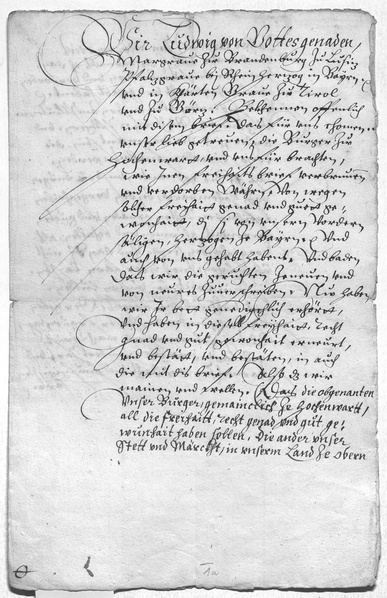 Wir Ludwig von Gottes genaden,
Marggraue Zu Brandenburg Zu Lusiz
Pfalzgraue bey Rhein Herzog in Bayrn
vnd in Kärten Graue Zu Tirol
vnd Zu Görz. Bekhennen offentlich
mit disem brief, das für vns chomen
vnser lieb getreuen, die Burger Zu
Hochenwart, vnd vns für brachten,
wie Inen Freihaits brief verbrunen
vnd verdorben Währn, Von wegen
solher Freihait genad vnd guet ge,
wonhait, di si von vnsern Vordern
säligen, Herzogen Ze Bayrn, Vnd
auch von vns gehabt habens, Vnd baden
das wir die geruchten Zeneuen vnd
von neuem Zuuerschreiben. Nu haben
wir Ir bete genedigchlich erhört,
Vnd haben in dieselb Freyhait, recht
gnad vnd gut gewonhait erneurt,
vnd bestät, vnd bestäten, in auch
die mit dis brief. Also dz wir
mainen vnd wellen. Das die obgenanten
Vnser Burger gemaincklich Ze Hochenwartt,
all die freihaitt, recht genad vnd gut ge,
wonhait haben sollen, die ander vnser
Stett vnd Märckht, in vnserm Land Ze obern
1a